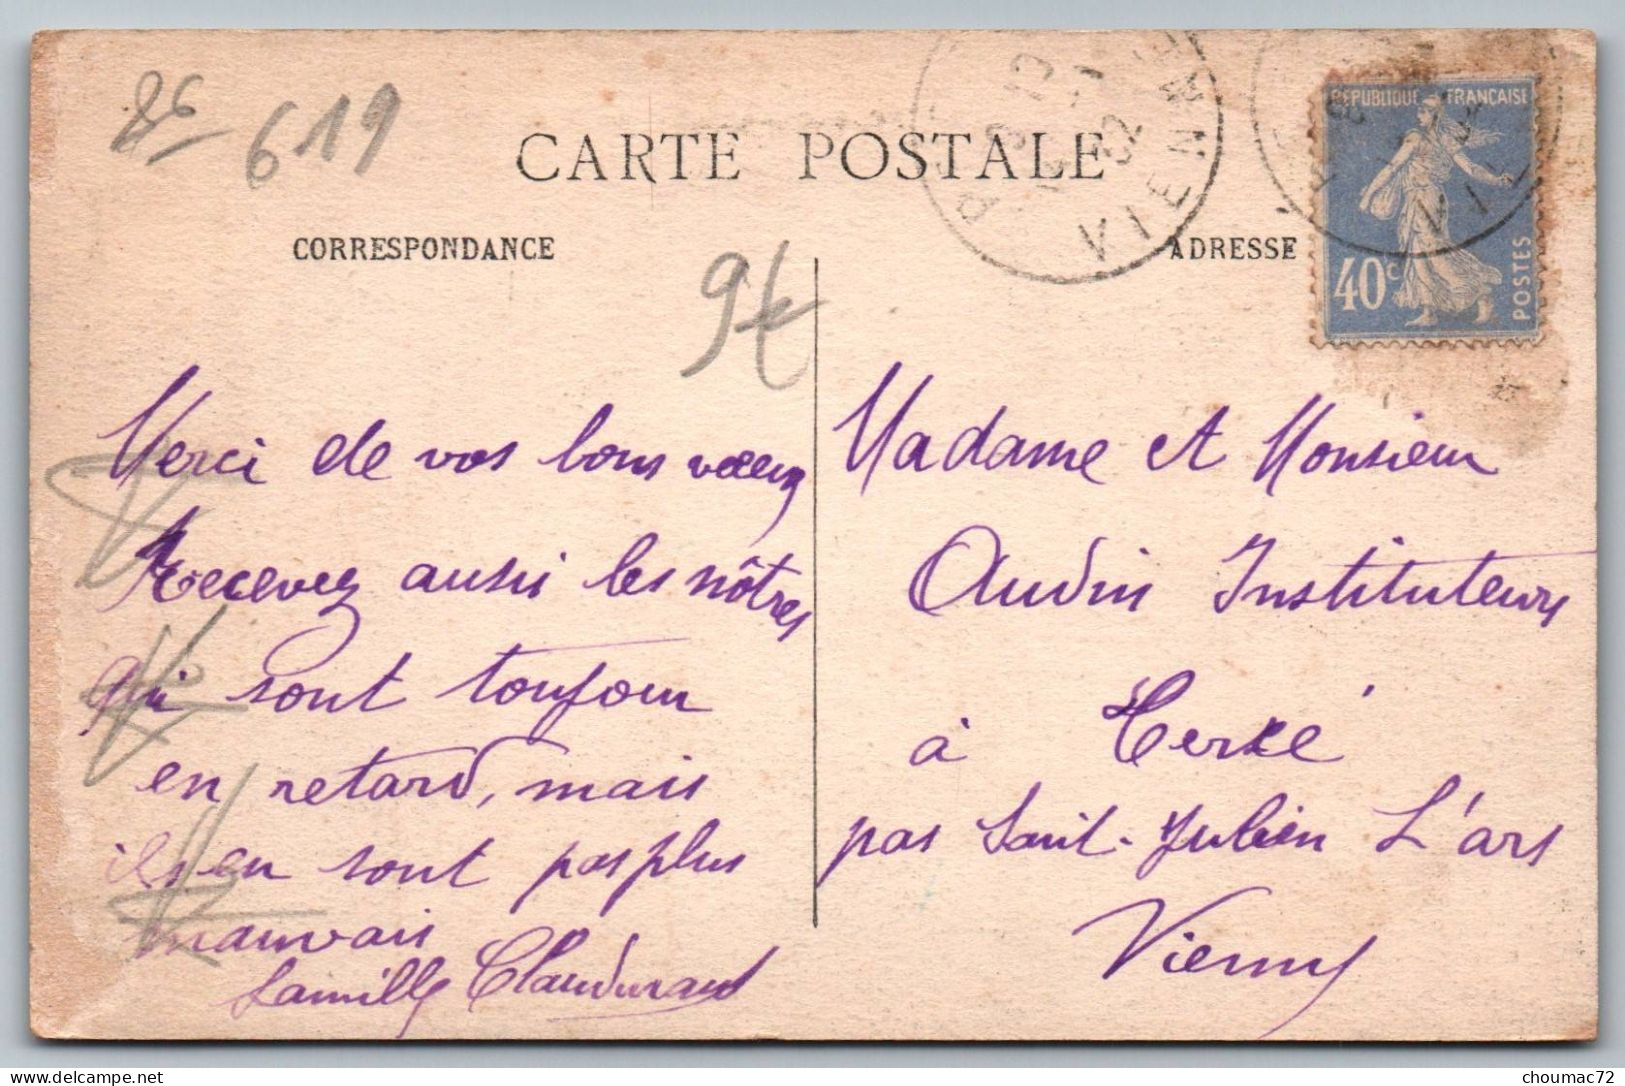 86
619
CARTE POSTALE
CORRESPONDANCE
ADRESSE
REPUBLIQUE FRANÇAISE
40c
POSTES
VIENNE
32
9€
Merci de vos bons voeux
Recevez aussi les nôtres
qui sont toujour
en retard, mais
ils en sont pas plus
mauvais
Famille Claudurand
Madame et Monsieur
Audin Instituteurs
à Tercé
par Saint-Julien L'ars
Vienne
choumac72